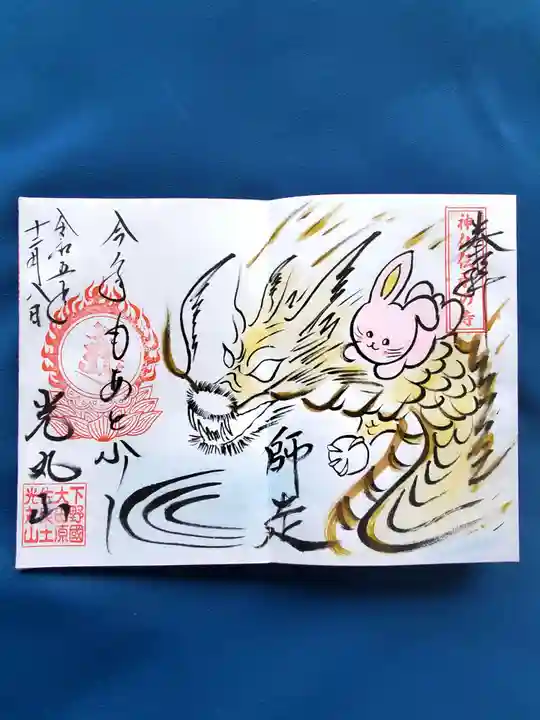 奉拝
師走
今年もあと少し
光丸山
令和五年
十二月八日
下野國
大田原
光丸山